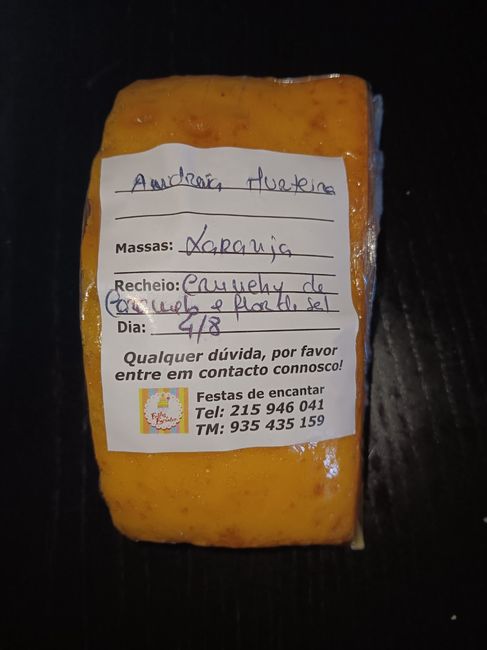 Andreia Murteira
Massas: Laranja
Recheio: Crunchy de
Caramelo e flor de sel
Dia: 4/8
Qualquer dúvida, por favor
entre em contacto connosco!
Festas de encantar
Tel: 215 946 041
TM: 935 435 159